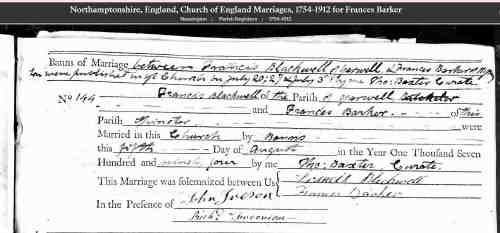 Northamptonshire, England, Church of England Marriages, 1754-1912 for Frances Barker
Nassington | Parish Registers | 1754-1912
Banns of Marriage between Francis Blackwell of Yarwell & Frances Barker of
were published in ye Church on July 20, 27, & by me Thos Baxter Curate
No 144 Francis Blackwell of the Parish of Yarwell Batchelor
and Frances Barker of this
Parish Spinster were
Married in this Church by Banns
this fifth Day of August in the Year One Thousand Seven
Hundred and ninety four by me Thos Baxter, Curate.
This Marriage was solemnized between Us Francis Blackwell
Frances Barker
In the Presence of John
Richd